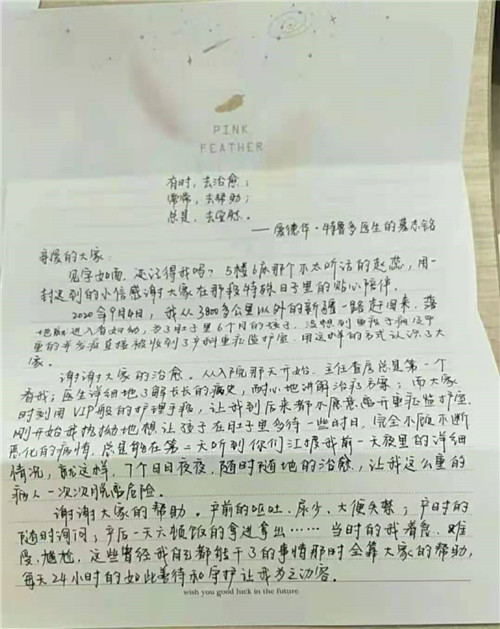 PINK
FEATHER
有时，去治愈；
常常，去帮助；
总是，去安慰。
——爱德华·特鲁多医生的墓志铭
亲爱的大家：
见字如面，还记得我吗？5楼6床那个不太听话的赵蕊，用一
封迟到的小信感谢大家在那段特殊日子里的贴心陪伴。
2020年9月6日，我从3800多公里以外的新疆一路赶回来，落
地就进入省妇幼，为了肚子里6个月的孩子，没想到
重的并发症直接被收到了产科重症监护室，用这样的方式认识了大
家。
谢谢大家的治愈。从入院那天开始，主任查房总是第一个
看我；医生详细地了解长长的病史，耐心地讲解治疗方案；而大家
时刻用VIP般的护理手病，让我到后来都不愿意离开重症监护室。
刚开始我执拗地想让孩子在肚子里多待一些时日，完全不顾不断
恶化的病情，总是能在第一天听到你们汇报我前一天夜里的详细
情况，就这样，7个日日夜夜，随时随地的治愈，让我这么重的
病人一次次脱离危险。
谢谢大家的帮助。产前的呕吐、尿少、大便失禁；产时的
随时询问；产后一天六顿饭的拿进拿出……当时的我着急、难
受、尴尬，这些曾经我自己都能干了的事情那时全靠大家的帮助，
每天24小时的如此善待和守护让我为之动容。
wish you good luck in the future